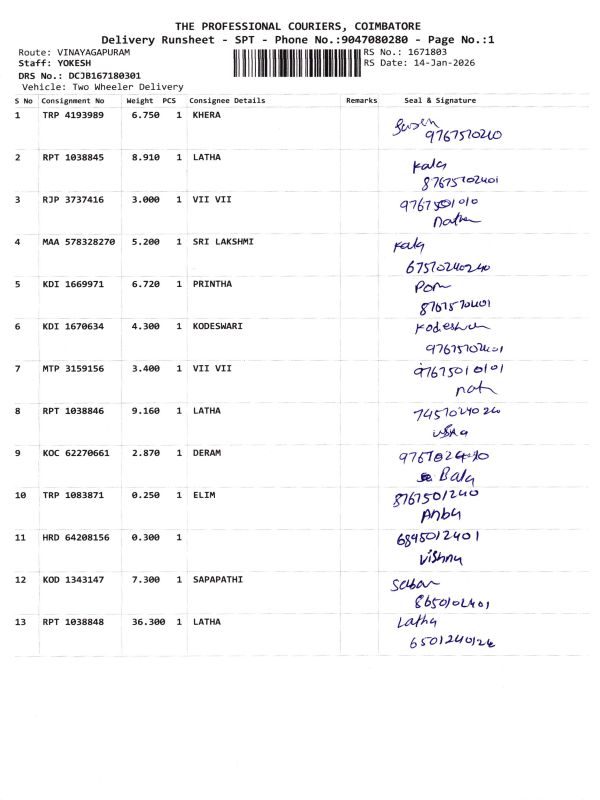 THE PROFESSIONAL COURIERS, COIMBATORE
Delivery Runsheet - SPT - Phone No.:9047080280 - Page No.:1
Route: VINAYAGAPURAM RS No.: 1671803
Staff: YOKESH RS Date: 14-Jan-2026
DRS No.: DCJB167180301
Vehicle: Two Wheeler Delivery
S No Consignment No Weight PCS Consignee Details Remarks Seal & Signature
1 TRP 4193989 6.750 1 KHERA
9767570210
2 RPT 1038845 8.910 1 LATHA
Kala
87675702401
3 RJP 3737416 3.000 1 VII VII
4 MAA 578328270 5.200 1 SRI LAKSHMI
Kala
67570240240
5 KDI 1669971 6.720 1 PRINTHA
6 KDI 1670634 4.300 1 KODESWARI
7 MTP 3159156 3.400 1 VII VII
97675010101
8 RPT 1038846 9.160 1 LATHA
9 KOC 62270661 2.870 1 DERAM
Bala
10 TRP 1083871 0.250 1 ELIM 8767501240
Anbu
11 HRD 64208156 0.300 1
6895012401
Vishnu
12 KOD 1343147 7.300 1 SAPAPATHI
8650102401
13 RPT 1038848 36.300 1 LATHA Latha